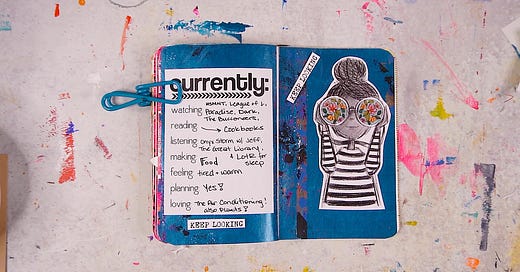 currently:
watching HSMMT, League of L,
Paradise, Dark,
The Buccaneers,
reading → Cookbooks
listening Onyx Storm w/ Jeff,
The Great Library,
making Food & LOTR for
sleep
feeling tired + warm
planning Yes!
loving The Air Conditioning!
also Plants!
KEEP LOOKING
KEEP LOOKING